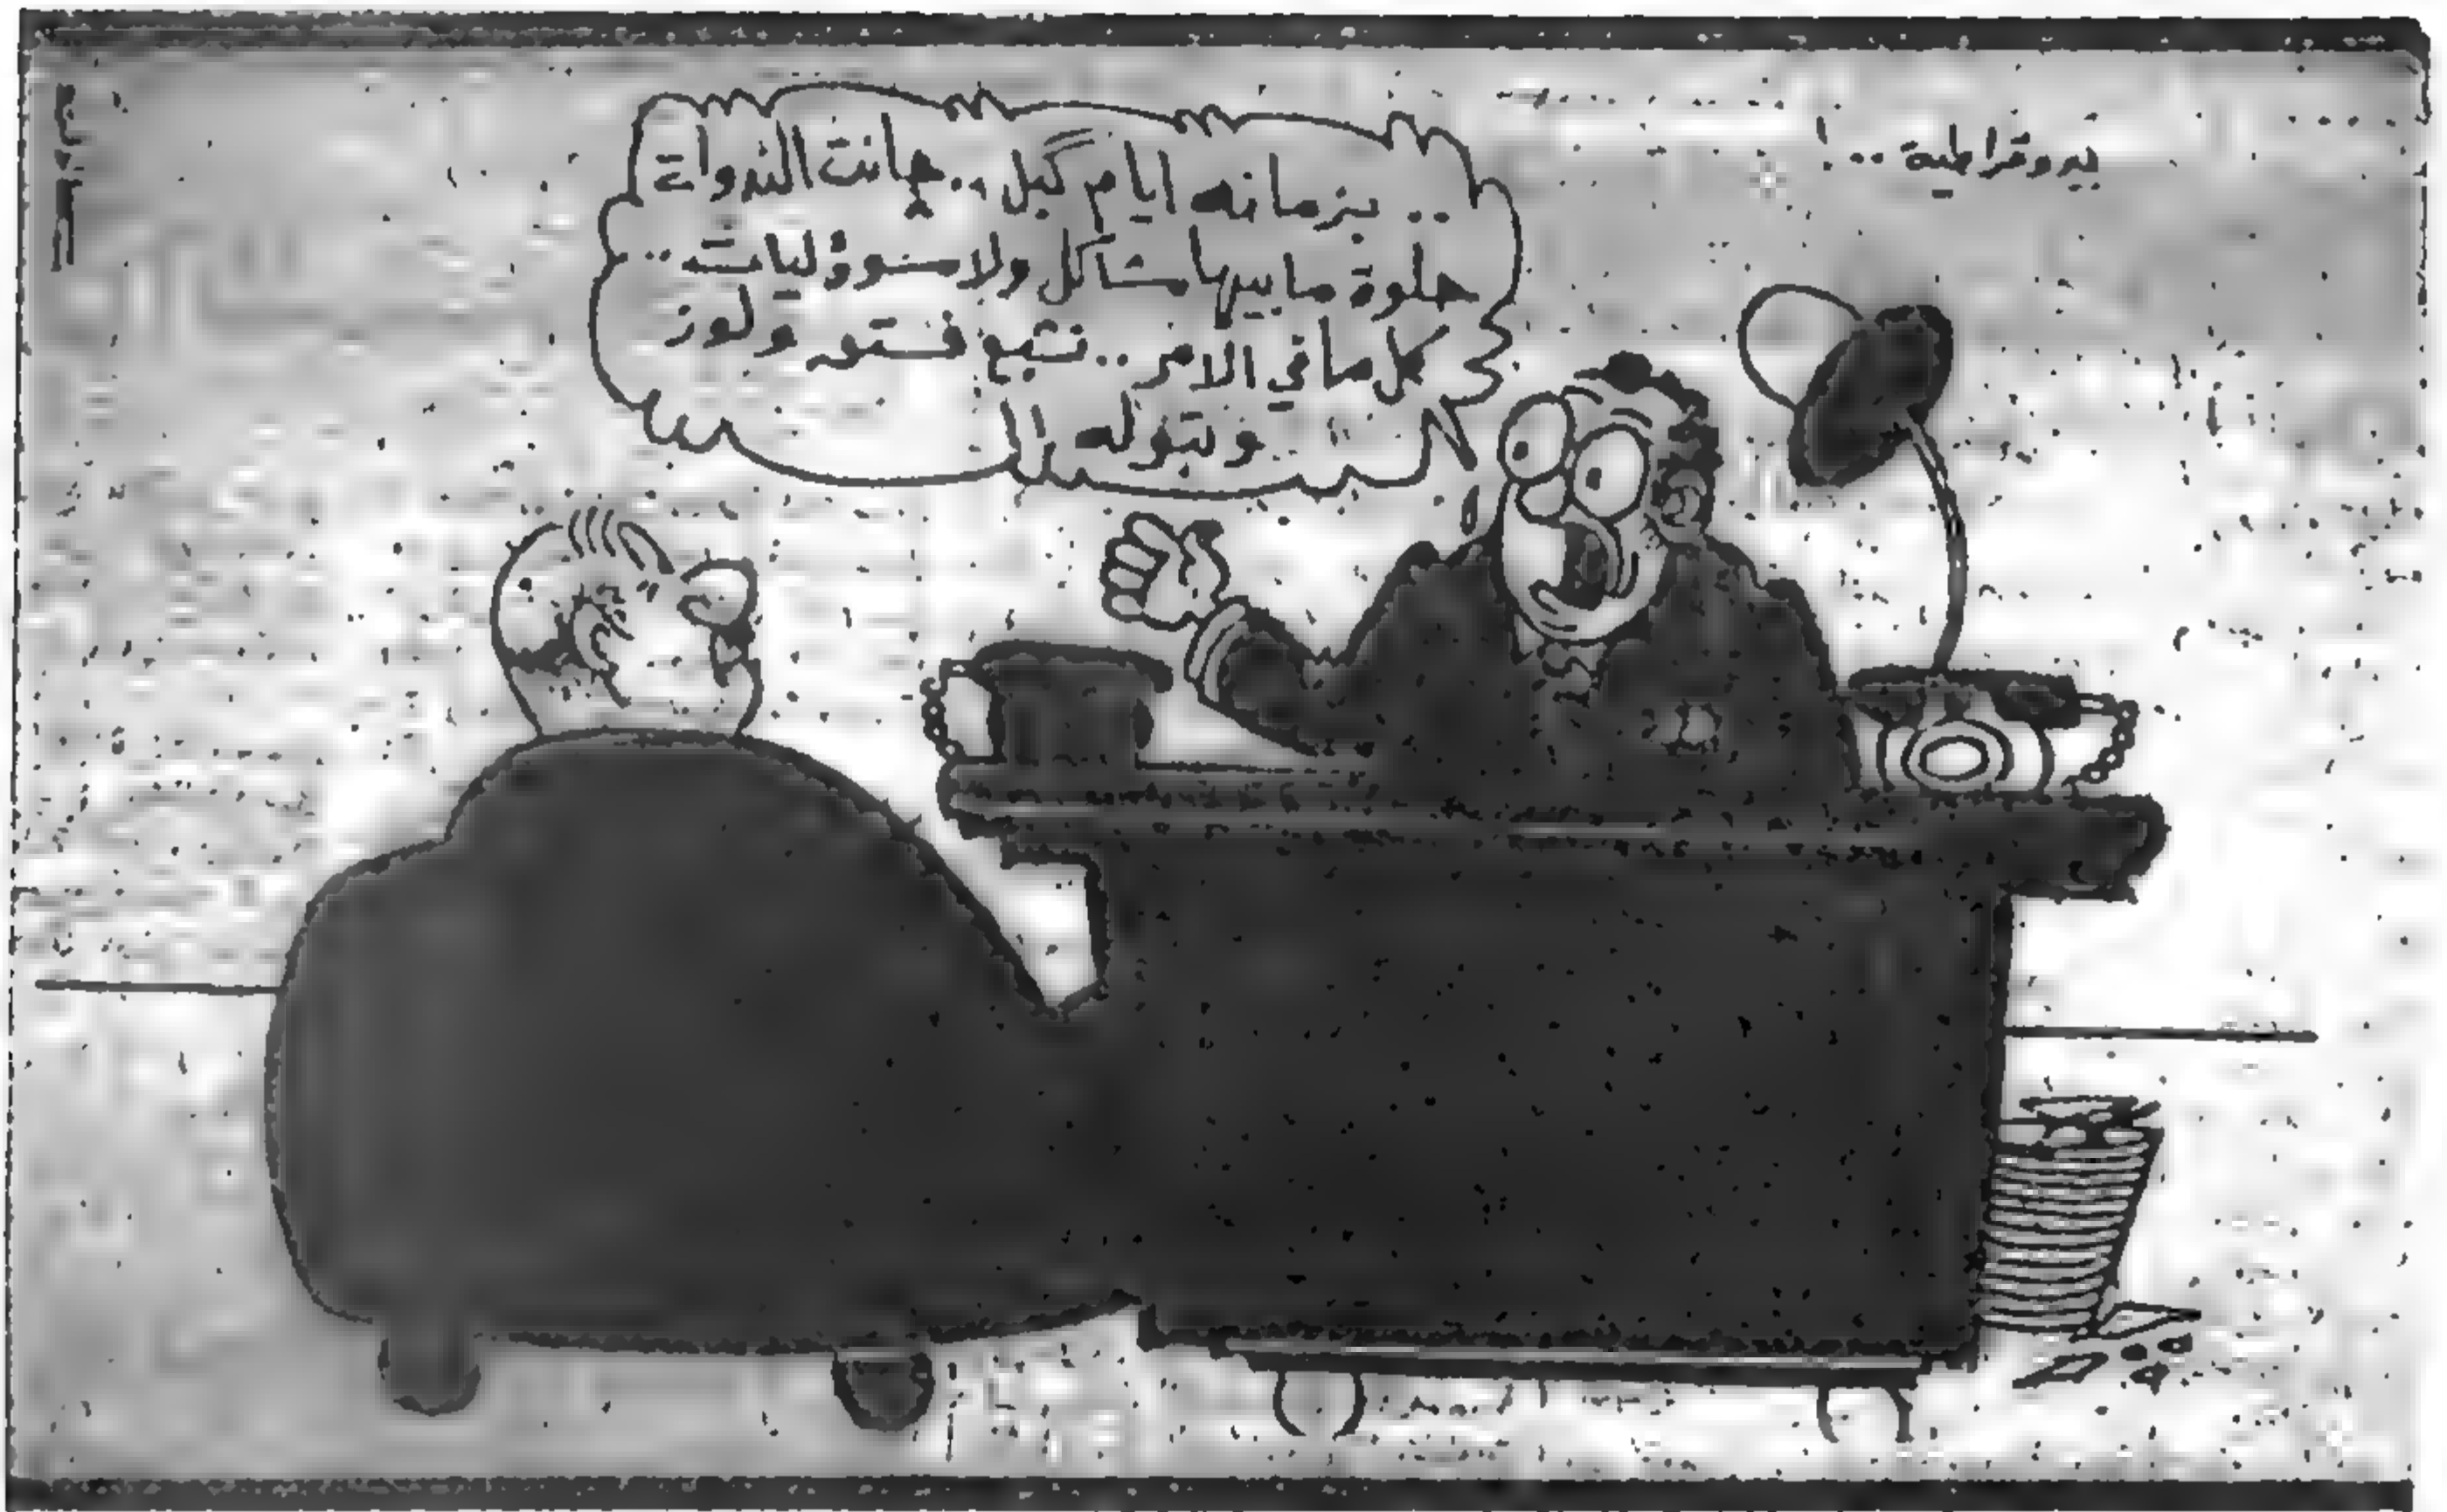 بيروقراطية ..!
.. بزمانه ايام گبل .. چانت الندوات
حلوة مابيها مشاكل ولا مسوؤليات ..
كل مافي الامر .. نشبع فستق ولوز